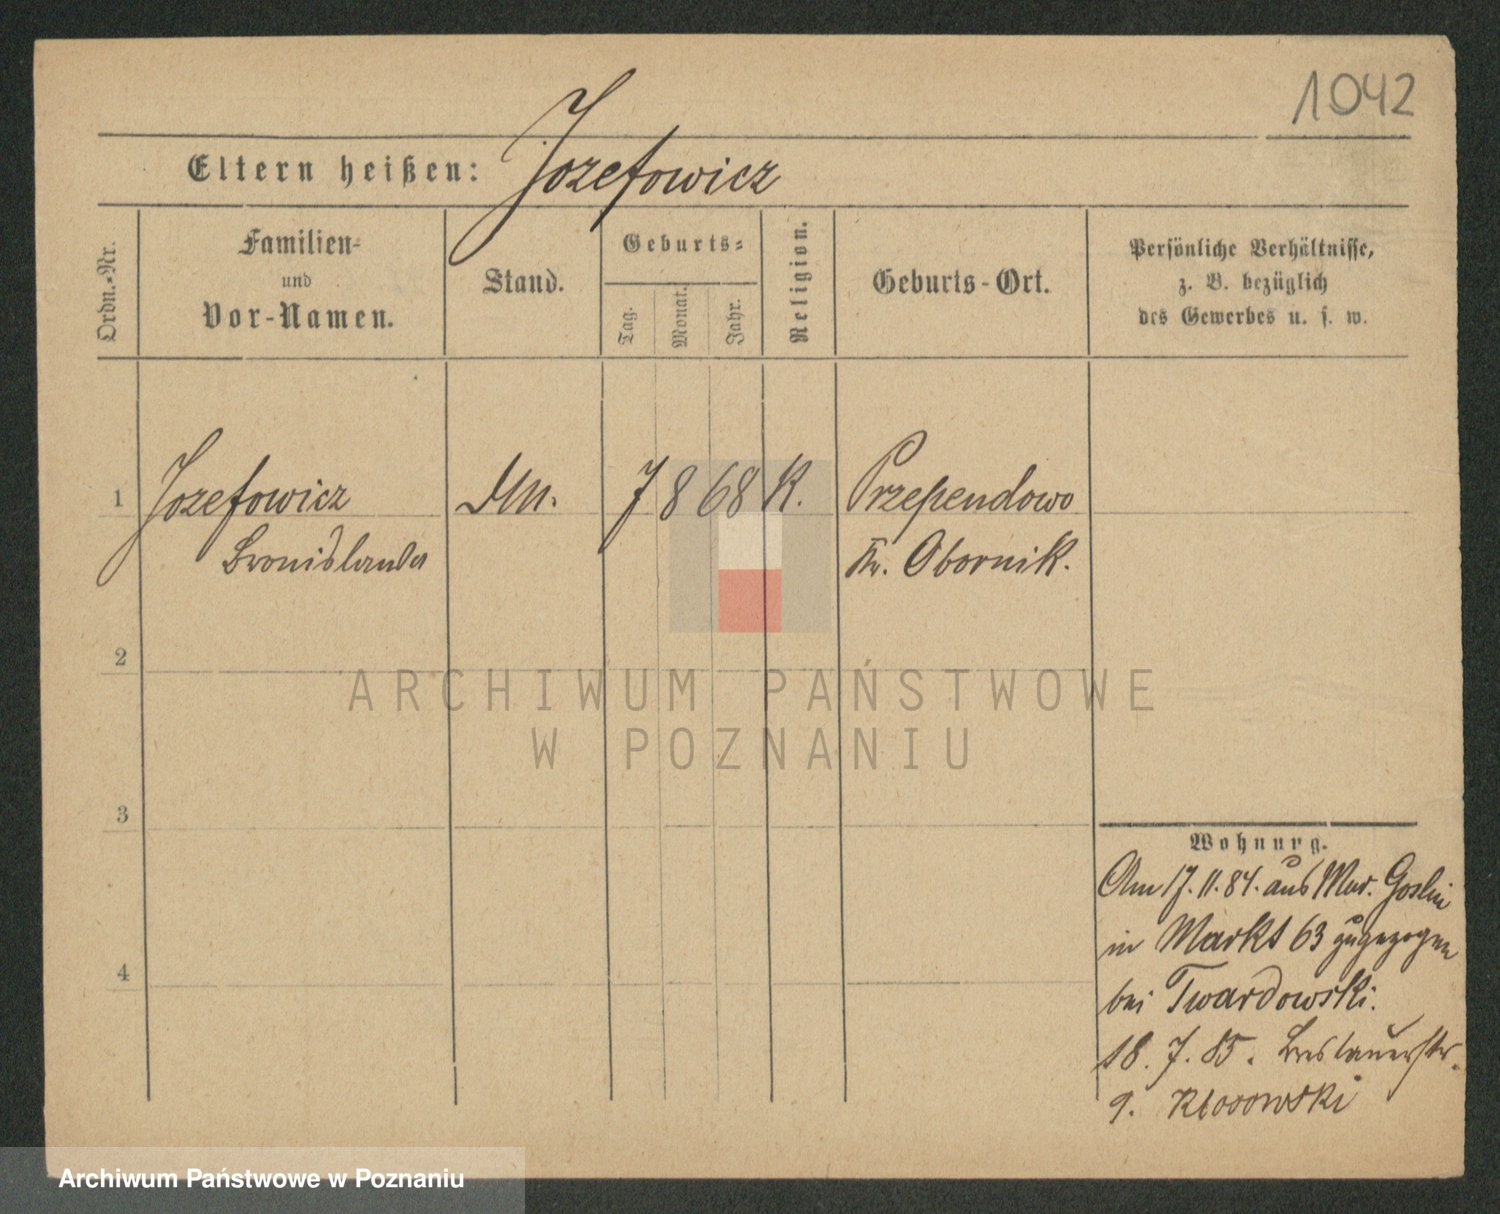 1042
Eltern heißen: Jozefowicz
Ordn.-Nr.
Familien-
und
Vor-Namen.
Stand.
Geburts-
Tag.
Monat.
Jahr.
Religion.
Geburts-Ort.
Persönliche Verhältnisse,
z. B. bezüglich
des Gewerbes u. s. w.
1 Jozefowicz 7 8 68 K. Przependowo
Bronislawa Kr. Obornik.
2
3
4
Wohnung.
Am 17.11.84. aus Mur. Goslin
in Markt 63 zugezogen
bei Twardowski.
18. 7. 85. Breslauerstr.
9. Klosowski
ARCHIWUM PAŃSTWOWE
W POZNANIU
Archiwum Państwowe w Poznaniu